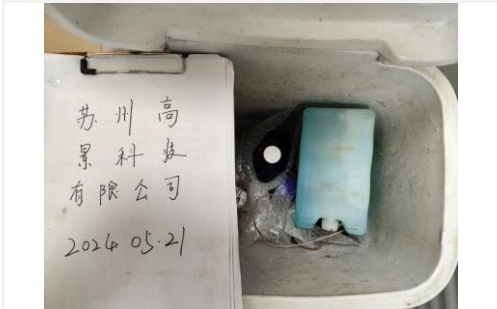 苏州高
景科技
有限公司
2024 05.21